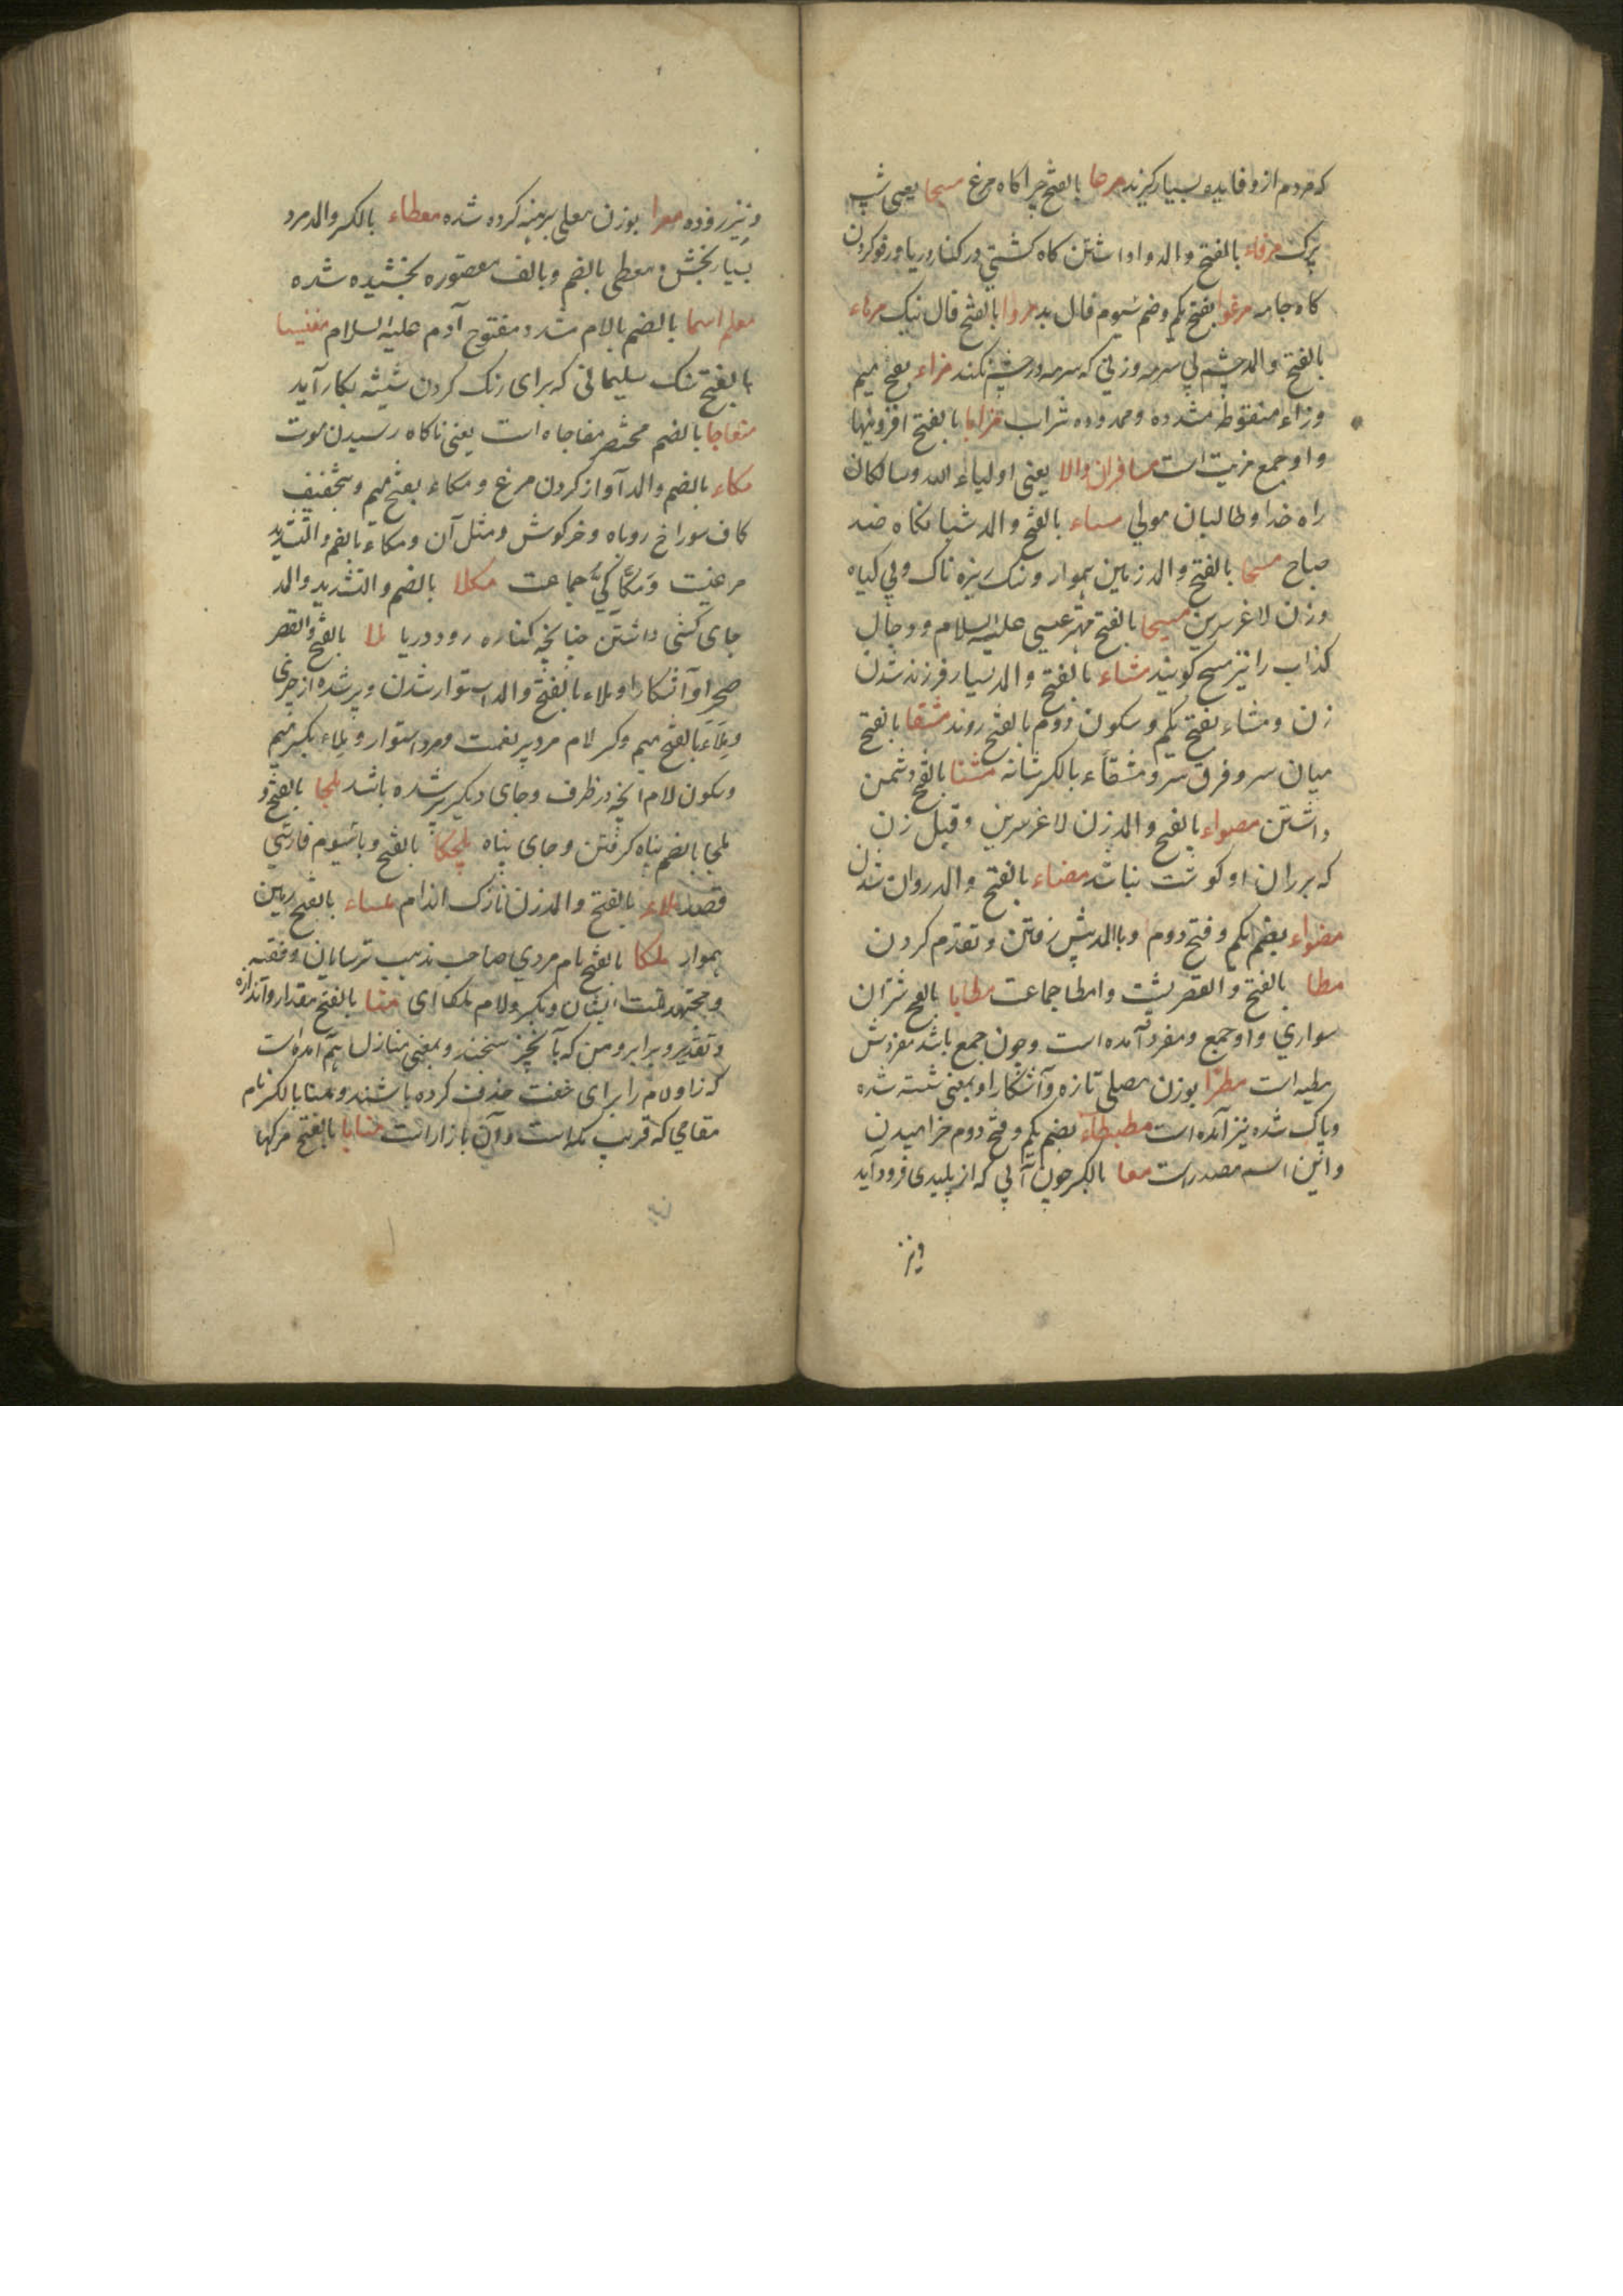 که مردم ازو فایده بسیار گیرند مرحا بالفتح چراکاه مرغ مسیحا یعنی شپ
پرک مرفاء بالفتح والمد واداشتن کاه کشتی در کنار دریا و رفو کردن
کاه جامه مرغوا بفتح یکم وضم سیوم فال بد مروا بالفتح فال نیک مرهاء
بالفتح والمد چشم بی سرمه وزنی که سرمه در چشم نکند مزاء بفتح میم
وزاء منقوطه مشدده وممدوده شراب مزایا بالفتح افزونیها
واو جمع مزیت است مسافران والا یعنی اولیاء الله وسالکان
راه خدا وطالبان مولی مساء بالفتح والمد شبانکاه ضد
صباح مسحا بالفتح والمد زمین هموار وسنک ریزه ناک وبی کیاه
وزن لاغر سرین مسیحا بالفتح مهتر عیسی علیه السلام ودجال
کذاب را نیز مسیح کویند مشاء بالفتح والمد بسیار فرزند شدن
زن ومشاء بفتح یکم وسکون دوم بالفتح روند مشقا بالفتح
میان سر وفرق سر ومشقاء بالکسر شانه مشنا بالفتح دشمن
داشتن مصواء بالفتح والمد زن لاغر سرین وقیل زن
که بر ران او کوشت نباشد مضاء بالفتح والمد روان شدن
مضواء بضم یکم وفتح دوم وبالمد پیش رفتن وتقدم کردن
مطا بالفتح والقصر پشت وامطا جماعت مطایا بالفتح شتران
سواری واو جمع ومفرد آمده است وچون جمع باشد مفردش
مطیه است مطرا بوزن مصلی تازه وآشکارا وبمعنی شسته شده
وپاک شده نیز آمده است مطیطاء بضم یکم وفتح دوم خرامیدن
واین اسم مصدر است معا بالکسر چون آبی که از پلیدی فرود آید
ونیز
ونیز روده معرا بوزن معلی برهنه کرده شده معطاء بالکسر والمد مرد
بسیار بخش ومعطی بالضم وبالف مقصوره بخشیده شده
معلم اسما بالضم بالام مشدد مفتوح آدم علیه السلام مغنیسا
بالفتح سنک سلیمانی که برای رنک کردن شیشه بکار آید
مفاجا بالضم مختصر مفاجاه است یعنی ناکاه رسیدن موت
مکاء بالضم والمد آواز کردن مرغ ومکاء بفتح میم وتخفیف
کاف سوراخ روباه وخرکوش ومثل آن ومکاء بالضم والتشدید
مرغیت ومکاکی جماعت مکلا بالضم والتشدید والمد
جای کشتی داشتن چنانچه کناره رود دریا ملا بالفتح والقصر
صحرا وآشکارا وملاء بالفتح والمد استوار شدن وپر شده از چیزی
وملاء بالفتح میم وکسر لام مرد پر نعمت ومرد استوار وملاء بکسر میم
وسکون لام آنچه در ظرف وجای دیکر پر شده باشد ملجا بالفتح و
ملجا بالضم پناه کرفتن وجای پناه ملچکا بالفتح وباسیوم فارسی
قصد ملاء بالفتح والمد زن نازک اندام ملساء بالفتح زمین
هموار ملکا بالفتح نام مردی صاحب مذهب ترسایان وفقیه
ومجتهد ملت ایشان وبکسر ولام ملکاای منا بالفتح مقدار واندازه
وتقدیر وبرابر ومن که بآن چیز سنجند وبمعنی منازل هم آمده است
که زا ولام را برای خفت حذف کرده باشند ومنا بالکسر نام
مقامی که قریب مکه است ودر آن بازار است منایا بالفتح مرکها